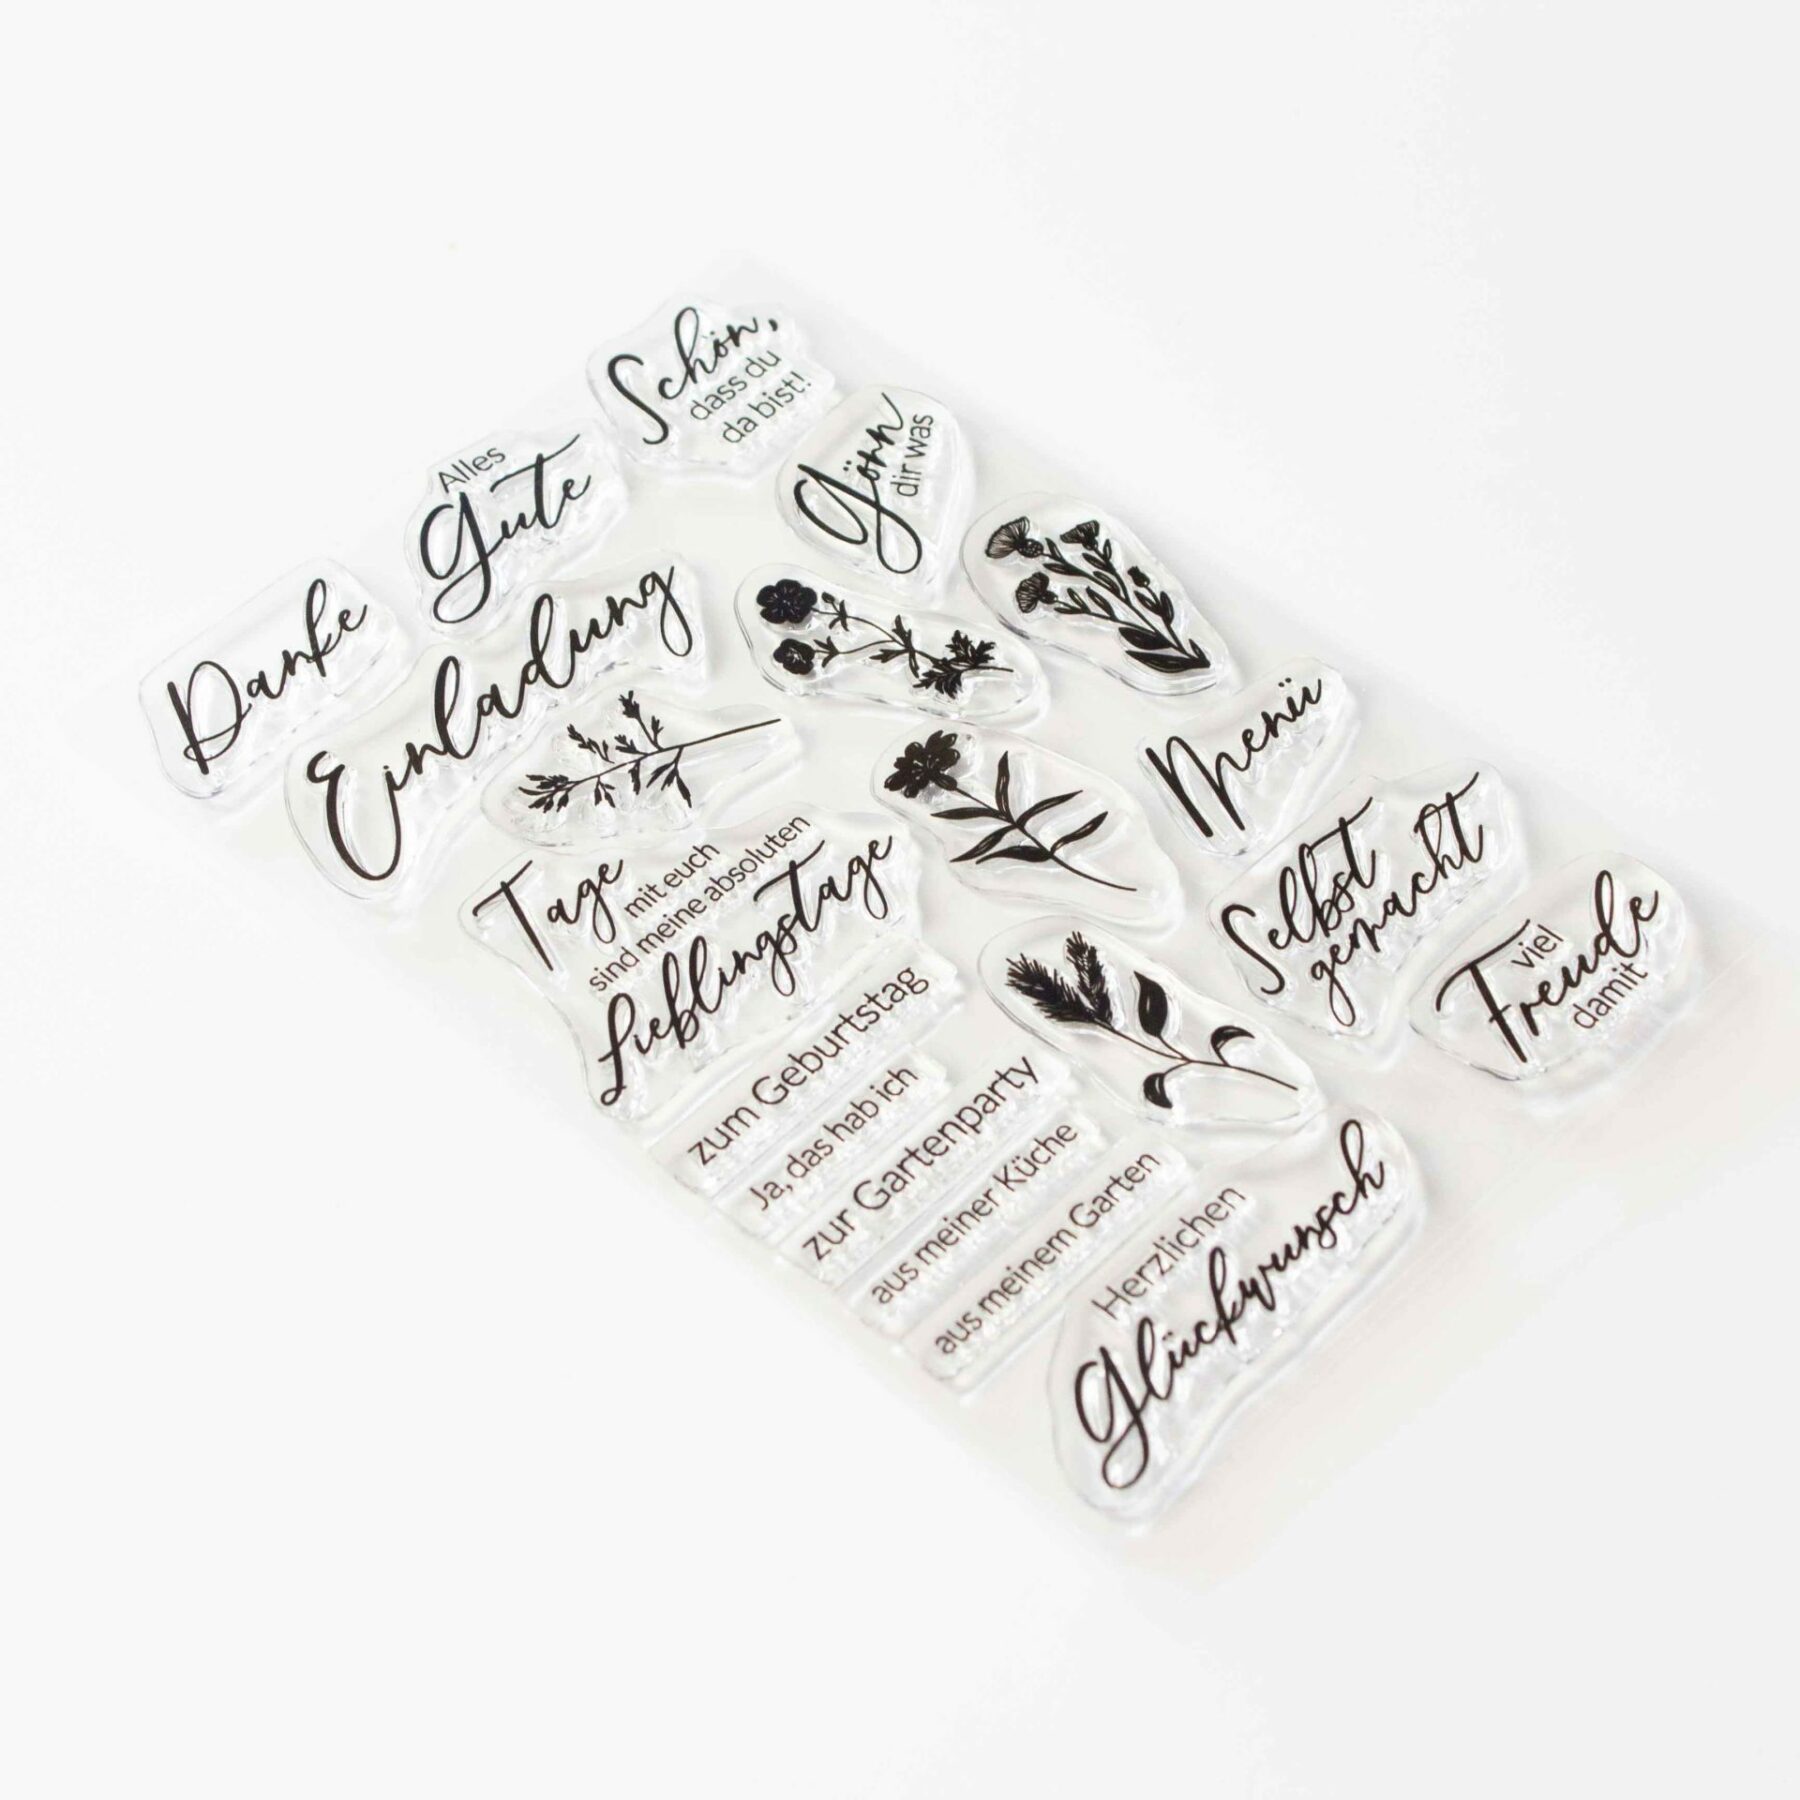 Danke
Alles
Gute
Schön,
dass du
da bist!
Gönn
dir was
Einladung
Tage
mit euch
sind meine absoluten
Lieblingstage
Menü
Selbst
gemacht
viel
Freude
damit
zum Geburtstag
Ja, das hab ich
zur Gartenparty
aus meiner Küche
aus meinem Garten
Herzlichen
Glückwunsch